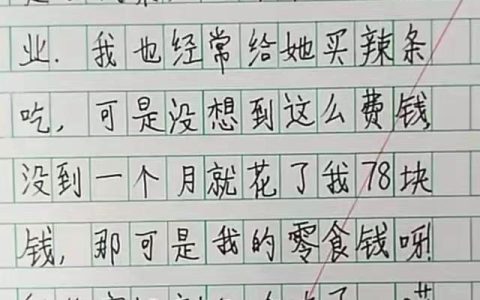 业．我也经常给她买辣条
吃，可是没想到这么费钱，
没到一个月就花了我78块
钱，那可是我的零食钱呀！